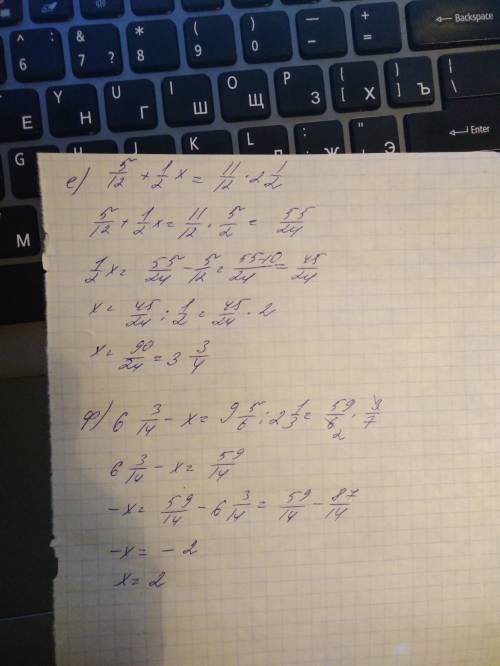 * ( ) — + Backspace
^ : & 7 ? 8 9 0 - = 
6
Y U I O P { } |
E H Г Ш Щ З [ Х ] Ъ \
G H J K L : " Enter
Ж Э
М
е) 5/12 + 1/2 x = 11/12 · 2 1/2
5/12 + 1/2 x = 11/12 · 5/2 = 55/24
1/2 x = 55/24 - 5/12 = 55-10/24 = 45/24
x = 45/24 : 1/2 = 45/24 · 2
x = 90/24 = 3 3/4
ф) 6 3/14 - x = 9 5/6 : 2 1/3 = 59/6 · 3/7
2
6 3/14 - x = 59/14
-x = 59/14 - 6 3/14 = 59/14 - 87/14
-x = -2
x = 2